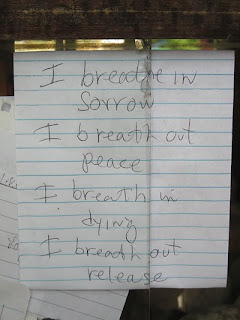 I breathe in
Sorrow
I breath out
peace
I breath in
dying
I breath out
release